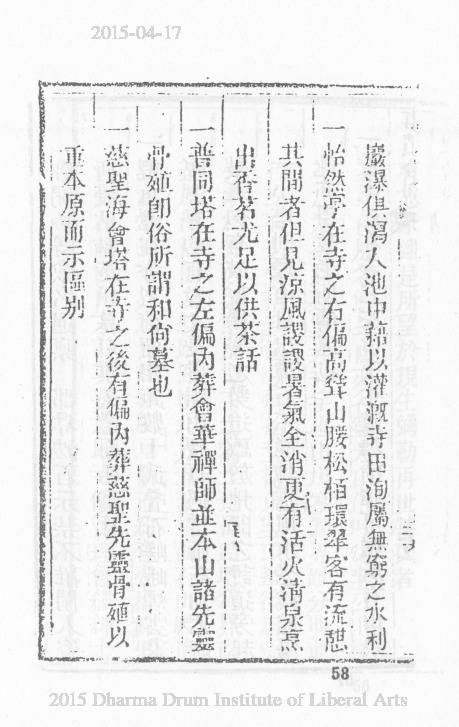 2015-04-17
巖瀑俱瀉入池中藉以灌漑寺田洵屬無窮之水利
一怡然亭在寺之右偏高聳山腰松栢環翠客有流憇
其間者但見涼風謖謖暑氣全消更有活火淸泉烹
出香茗尤足以供茶話
一普同塔在寺之左偏內葬會華禪師並本山諸先靈
骨殖卽俗所謂和尙墓也
一慈聖海會塔在寺之後有偏內葬慈聖先靈骨殖以
重本原而示區别
58
2015 Dharma Drum Institute of Liberal Arts